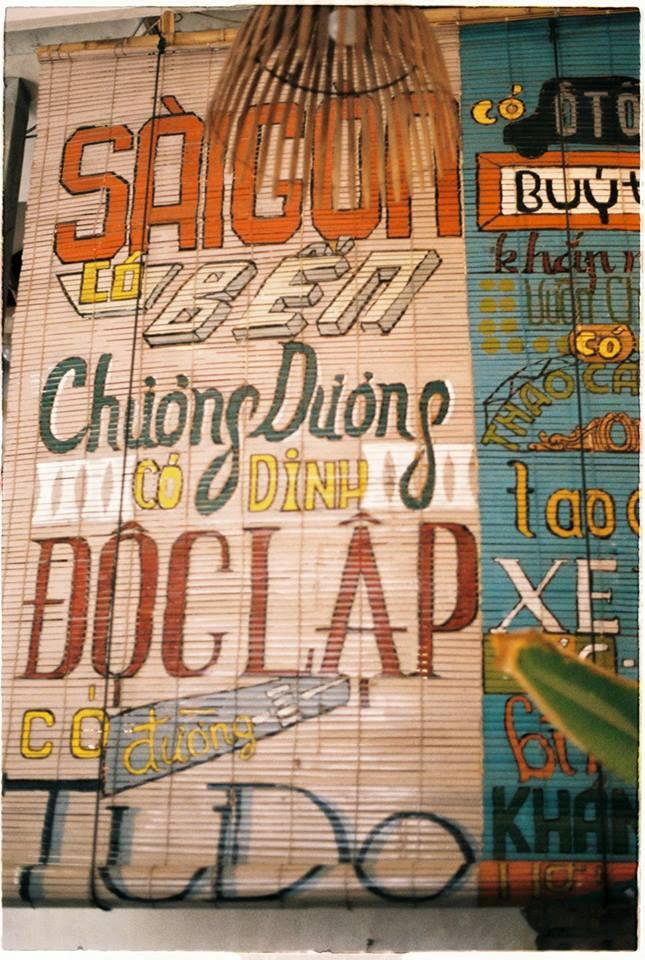 SÀIGON
CÓ BẾN
Chương Dương
CÓ DINH
ĐỘC LẬP
CÓ đường
TỰ DO
CÓ ÔTÔ
BUýt
khắp
Vườn
CÓ
THẢO CẦ
tao
XE
KHÁN